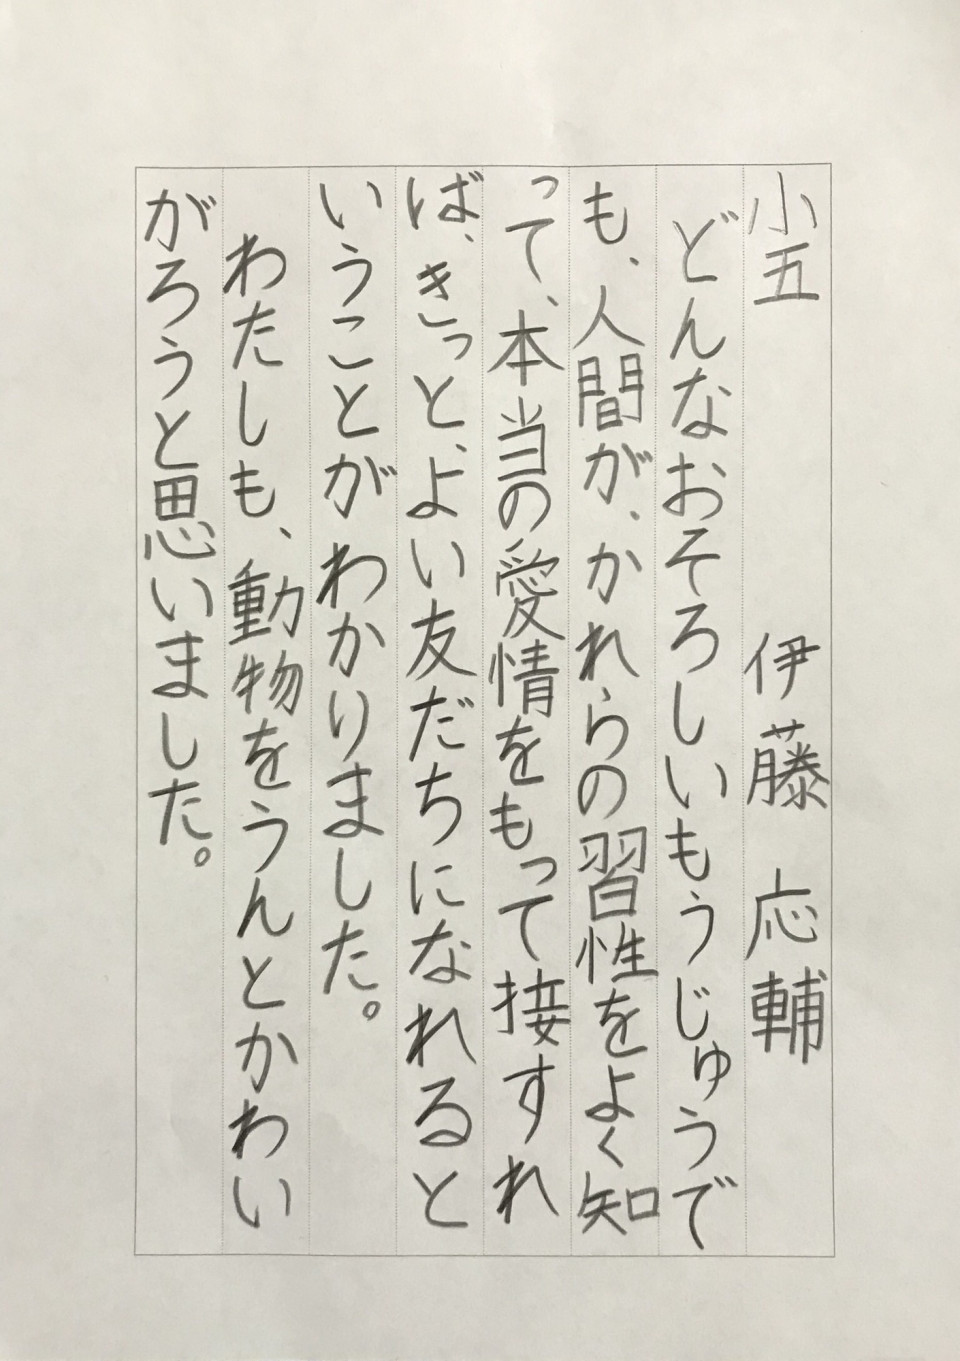 小五 伊藤 応輔
どんなおそろしいもうじゅうで
も、人間が、かれらの習性をよく知
って、本当の愛情をもって接すれ
ば、きっと、よい友だちになれると
いうことがわかりました。
わたしも、動物をうんとかわい
がろうと思いました。